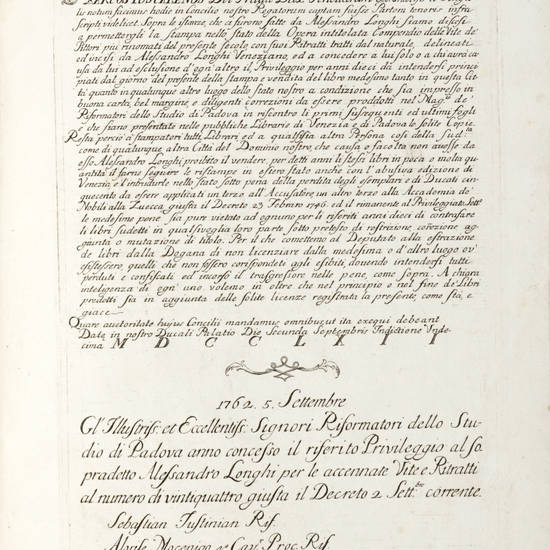 lo notum facimus hodie in Concilio nostro Rogatorum captam fuisse Partem tenoris infra
Scripti videlicet. Sopra le istanze, che ci furono fatte da Alessandro Longhi siamo discesi
a permettergli la stampa nello Stato della Opera intitolata Compendio delle Vite de'
Pittori più rinomati del presente secolo con suoi Ritratti tratti dal naturale, delineati
ed incisi da Alessandro Longhi Veneziano, ed a concedere a lui solo o a chi avrà cau
sa da lui ad esclusione d'ogni altro il Privilegio per anni dieci da intendersi princi
piati dal giorno del presente della stampa e vendita del libro medesimo tanto in questa Cit
tà quanto in qualunque altro luogo dello Stato nostro a condizione che sia impresso in
buona carta, bel margine, e diligenti correzioni da essere prodotti nel Mag.to de'
Riformatori dello Studio di Padova in riscontro li primi, susseguenti ed ultimi fogli
e che siano presentate nelle pubbliche Librarie di Venezia e di Padova le solite Copie.
Resta perciò a' stampatori tutti, Librari ed a qualsisia altra Persona così della Sud.ta
come di qualunque altra Città del Dominio nostro, che causa o facoltà non avesse da
esso Alessandro Longhi, proibito il vendere, per detti anni li stessi libri in poca o molta qu
antità il farne seguire le ristampe in estero Stato anche con l'abusiva edizione di
Venezia, e l'introdurle nello Stato, sotto pena della perdita degli esemplari e di Ducati cin
quecento da essere applicati un terzo all'Accusatore un altro terzo alla Accademia de'
Nobili alla Zuecca giusta il Decreto 23 Febraro 1746. ed il rimanente al Privileggiato. Sott'
le medesime pene sia pure vietato ad ognuno per li riferiti anni dieci di contrafare
li libri sudetti in qualsivoglia loro parte sotto pretesto di ristrizione, corezione ag
giunta o mutazione di titolo. Per il che cometemo al Deputato alla estrazione
de libri dalla Dogana di non licenziare dalla medesima o d'altro luogo ov'
esistessero, quelli, che non fossero corrispondenti agli esibiti, dovendo intendersi tutti
perduti e confiscati ed incorso il trasgressore nelle pene, come sopra. A chiara
inteligenza di ogn'uno volemo in oltre che nel principio o nel fine de' Libri
predetti sia in aggiunta delle solite licenze registrata la presente, come sta, e
giace.
Quare auctoritate hujus Concilii mandamus omnibus, ut ita exequi debeant
Dat.æ in nostro Ducali Palatio Die Secunda Septembris Indictione Unde-
cima M D C C L X I I
1762. 5. Settembre
Gl'Illustriss: et Eccellentiss: Signori Riformatori dello Stu
dio di Padova anno concesso il riferito Privileggio al so
pradetto Alessandro Longhi per le accennate Vite e Ritratti
al numero di vintiquattro giusta il Decreto 2 Sett.bre corrente.
Sebastian Justinian Rif.
Alvise Mocenigo 4.º Cav.r Proc. Rif.